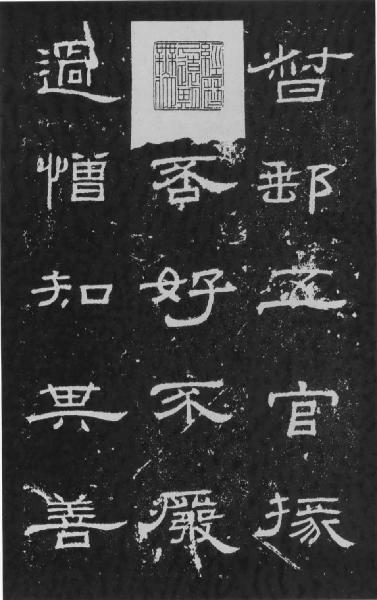 督郵五官掾
否好不廢
過憎知其善